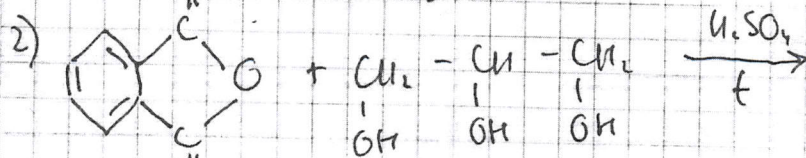 2) C O + CH₂ - CH - CH₂ H₂SO₄
C OH OH OH t